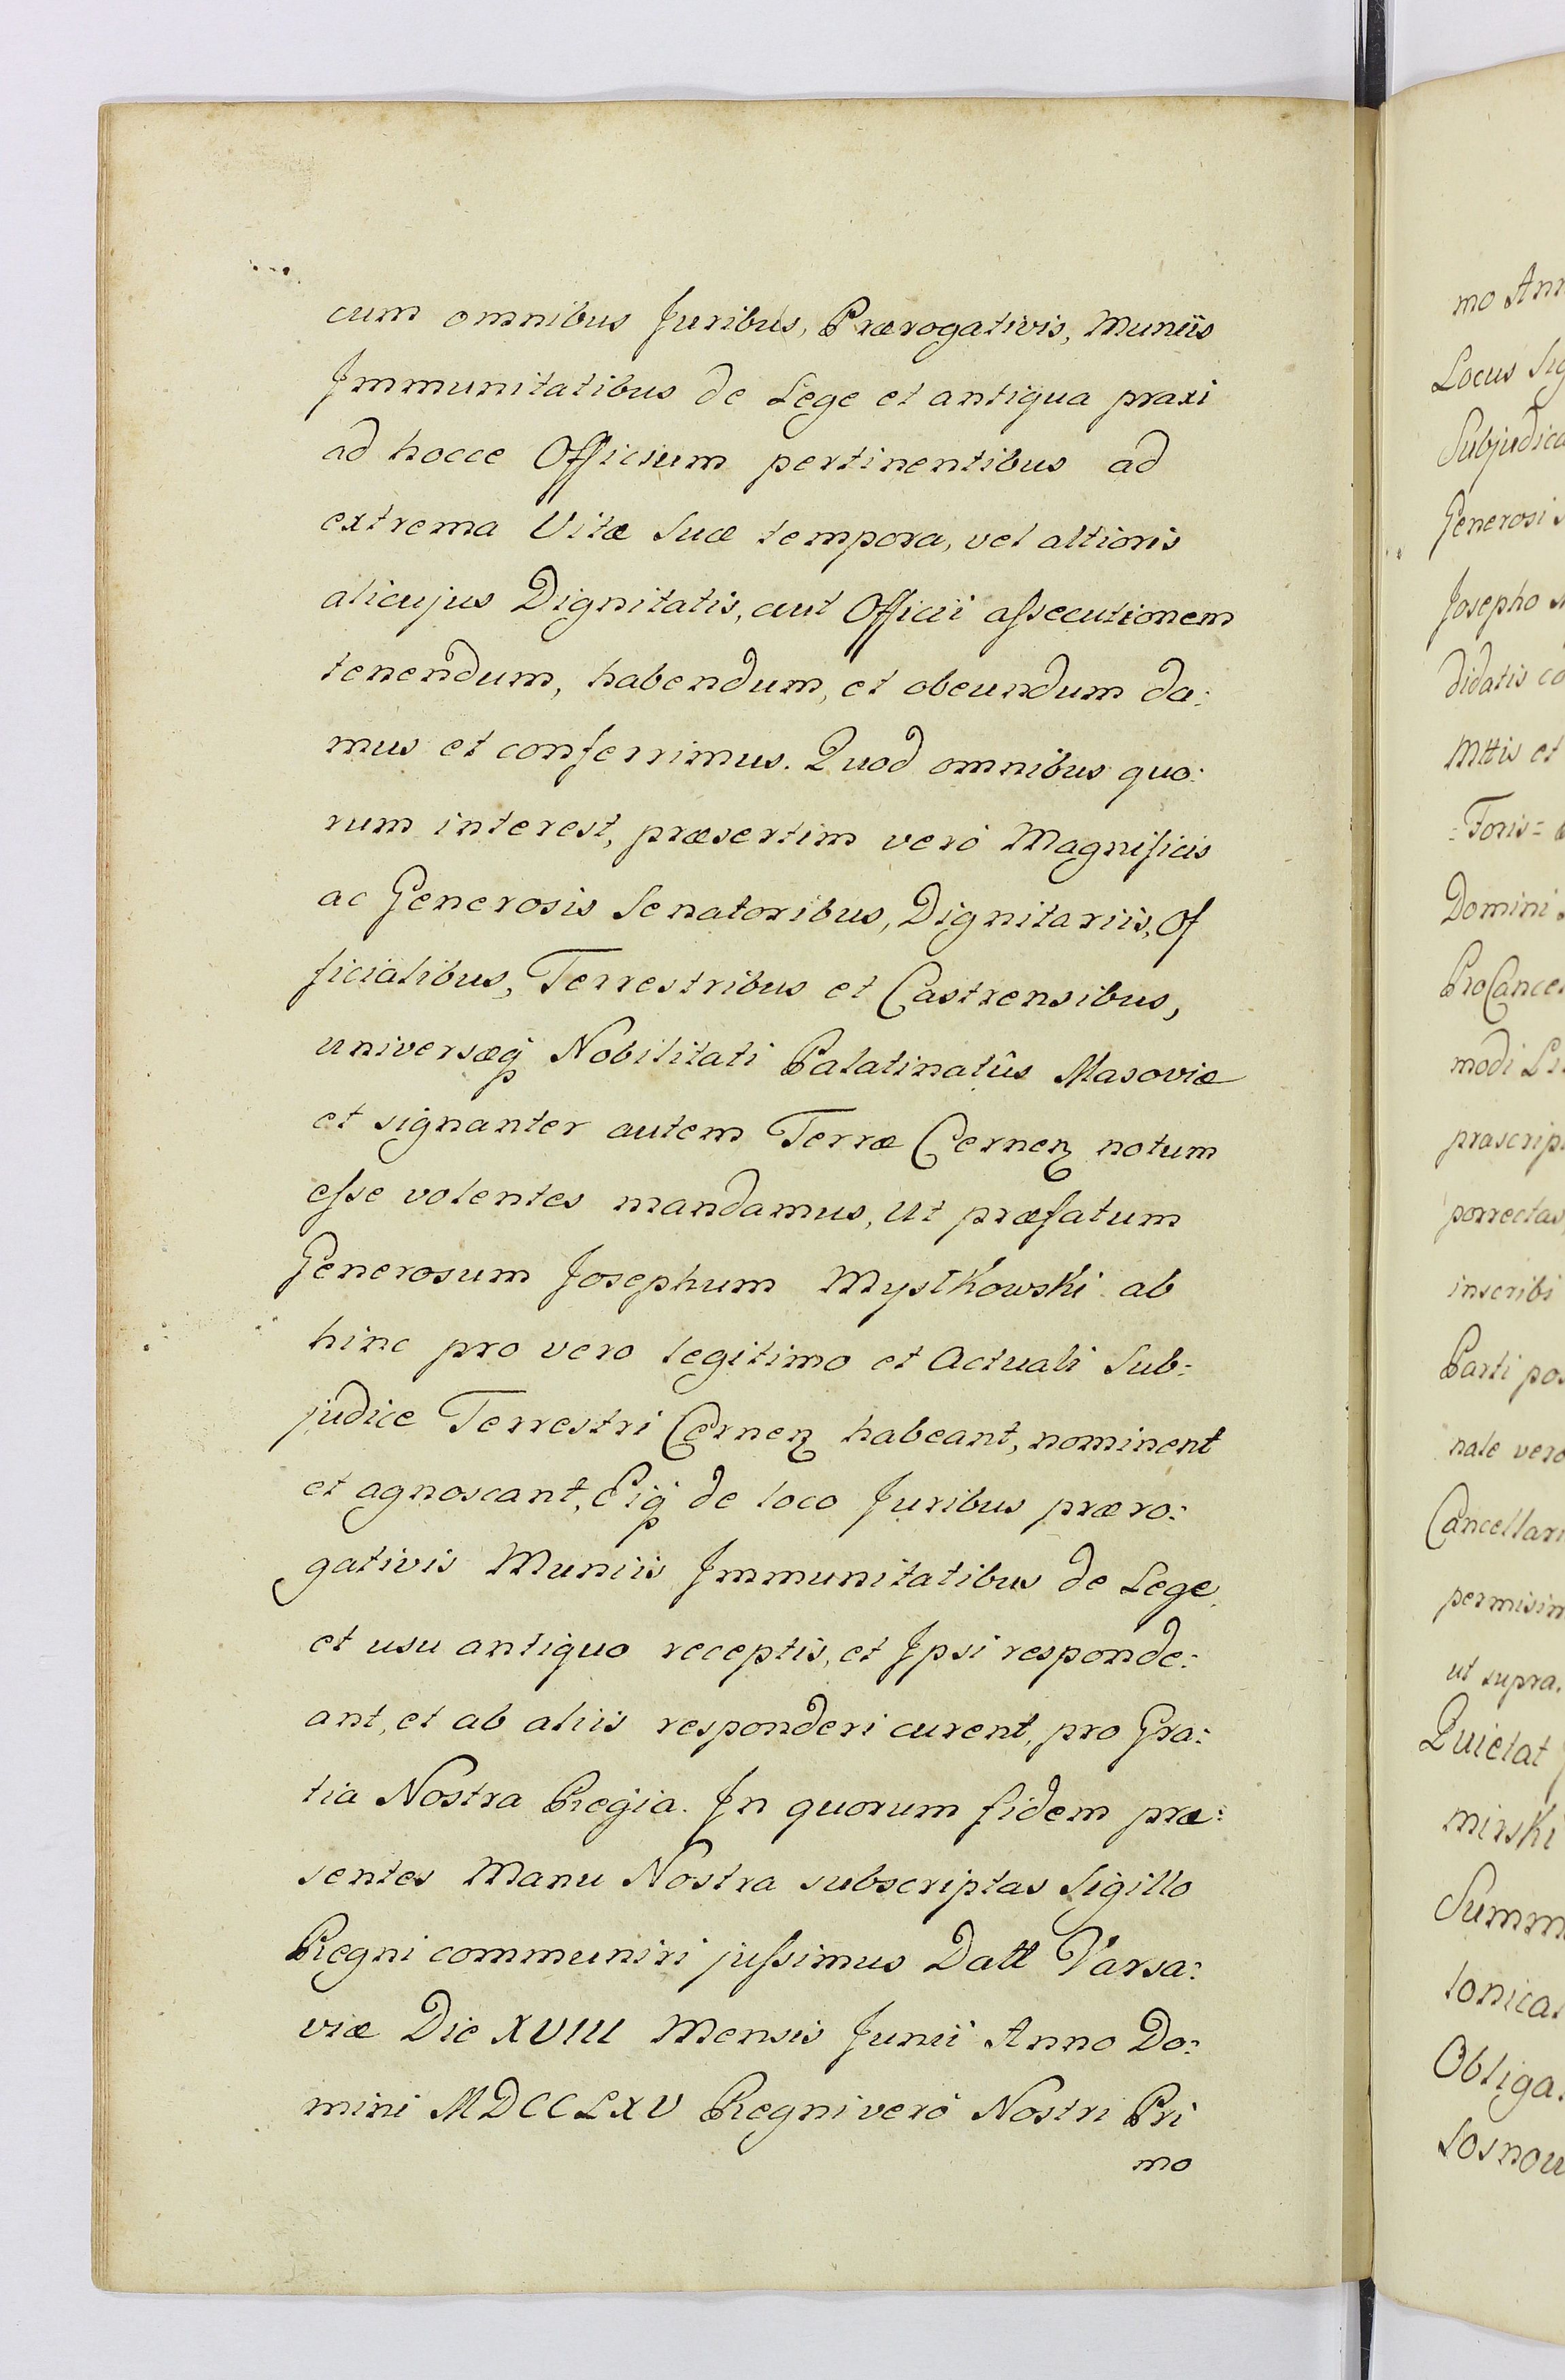 cum omnibus Juribus, Prærogativis, Muniis
Jmmunitatibus de Lege et antiqua praxi
ad hocce Officium pertinentibus ad
extrema Vitæ Suæ tempora, vel altioris
alicujus Dignitatis, aut Officii aſsecutionem
tenendum, habendum, et obeundum da:
mus et conferrimus. Quod omnibus quo:
rum interest, præsertim verò Magnificis
ac Generosis Senatoribus, Dignitariis, Of
ficialibus, Terrestribus et Castrensibus,
universæq Nobilitati Palatinatûs Masoviæ
et signanter autem Terræ Cernen notum
eſse volentes mandamus, Ut præfatum
Generosum Josephum Mystkowski ab
hinc pro vero legitimo et Actuali Sub:
judice Terrestri Cernen habeant, nominent
et agnoscant, Eiq de loco Juribus præro:
gativis Muniis Jmmunitatibus de Lege
et usu antiquo receptis, et Jpsi responde:
ant, et ab aliis responderi curent, pro Gra:
tia Nostra Regia. Jn quorum fidem præ:
sentes Manu Nostra subscriptas Sigillo
Regni communiri juſsimus Datt Varsa:
viæ Die XVIII Mensis Junii Anno Do:
mini MDCCLXV Regni verò Nostri Pri
mo
mo Ann
Locus Sig
Subjudica
Generosi
Josepho
didatis co
Mttis et
:Foris=
Domini
ProCancel
modi Li
præscrip
porrectas
inscribi
Parti pos
nale vero
Cancellari
permisim
ut supra.
Quietat
mirski
Summ
lonica
Obliga
Sosnow